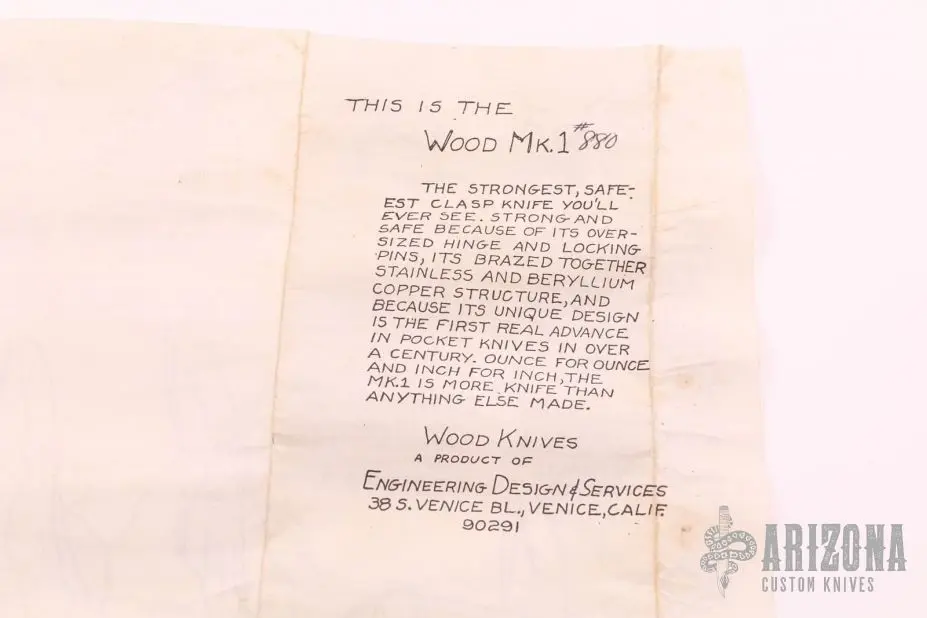 THIS IS THE
WOOD MK.1 #880
THE STRONGEST, SAFE-
EST CLASP KNIFE YOU'LL
EVER SEE. STRONG AND
SAFE BECAUSE OF ITS OVER-
SIZED HINGE AND LOCKING
PINS, ITS BRAZED TOGETHER
STAINLESS AND BERYLLIUM
COPPER STRUCTURE, AND
BECAUSE ITS UNIQUE DESIGN
IS THE FIRST REAL ADVANCE
IN POCKET KNIVES IN OVER
A CENTURY. OUNCE FOR OUNCE
AND INCH FOR INCH, THE
MK.1 IS MORE KNIFE THAN
ANYTHING ELSE MADE.
WOOD KNIVES
A PRODUCT OF
ENGINEERING DESIGN & SERVICES
38 S. VENICE BL., VENICE, CALIF.
90291
ARIZONA
CUSTOM KNIVES